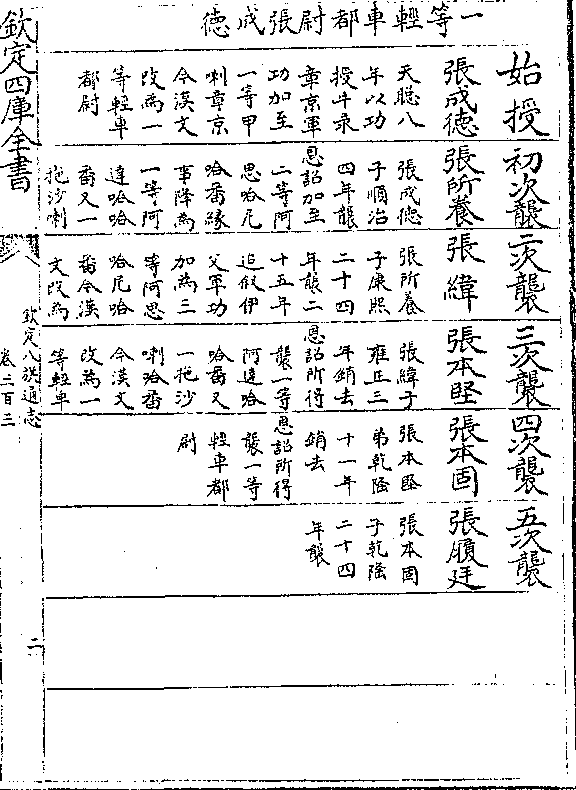 一等輕車都尉張成德
始授
張成德
天聰八
年以功
授牛录
章京軍
功加至
一等甲
喇章京
今漢文
改為一
等輕車
都尉
初次襲
張所養
張成德
子順治
四年襲
恩詔加至
二等阿
思哈尼
哈番緣
事降為
一等阿
達哈哈
番又一
拖沙喇
二次襲
張緯
張所養
子康熙
二十四
年襲二
十五年
追叙伊
父軍功
加為三
等阿思
哈尼哈
番今漢
文改為
三次襲
張本堅
張緯子
雍正三
年銷去
恩詔所得
襲一等
阿達哈
哈番又
一拖沙
喇哈番
今漢文
改為一
等輕車
四次襲
張本固
張本堅
弟乾隆
十一年
銷去
恩詔所得
襲一等
輕車都
尉
五次襲
張順廷
張本固
子乾隆
二十四
年襲
欽定四庫全書
欽定八旗通志
卷二百三
二